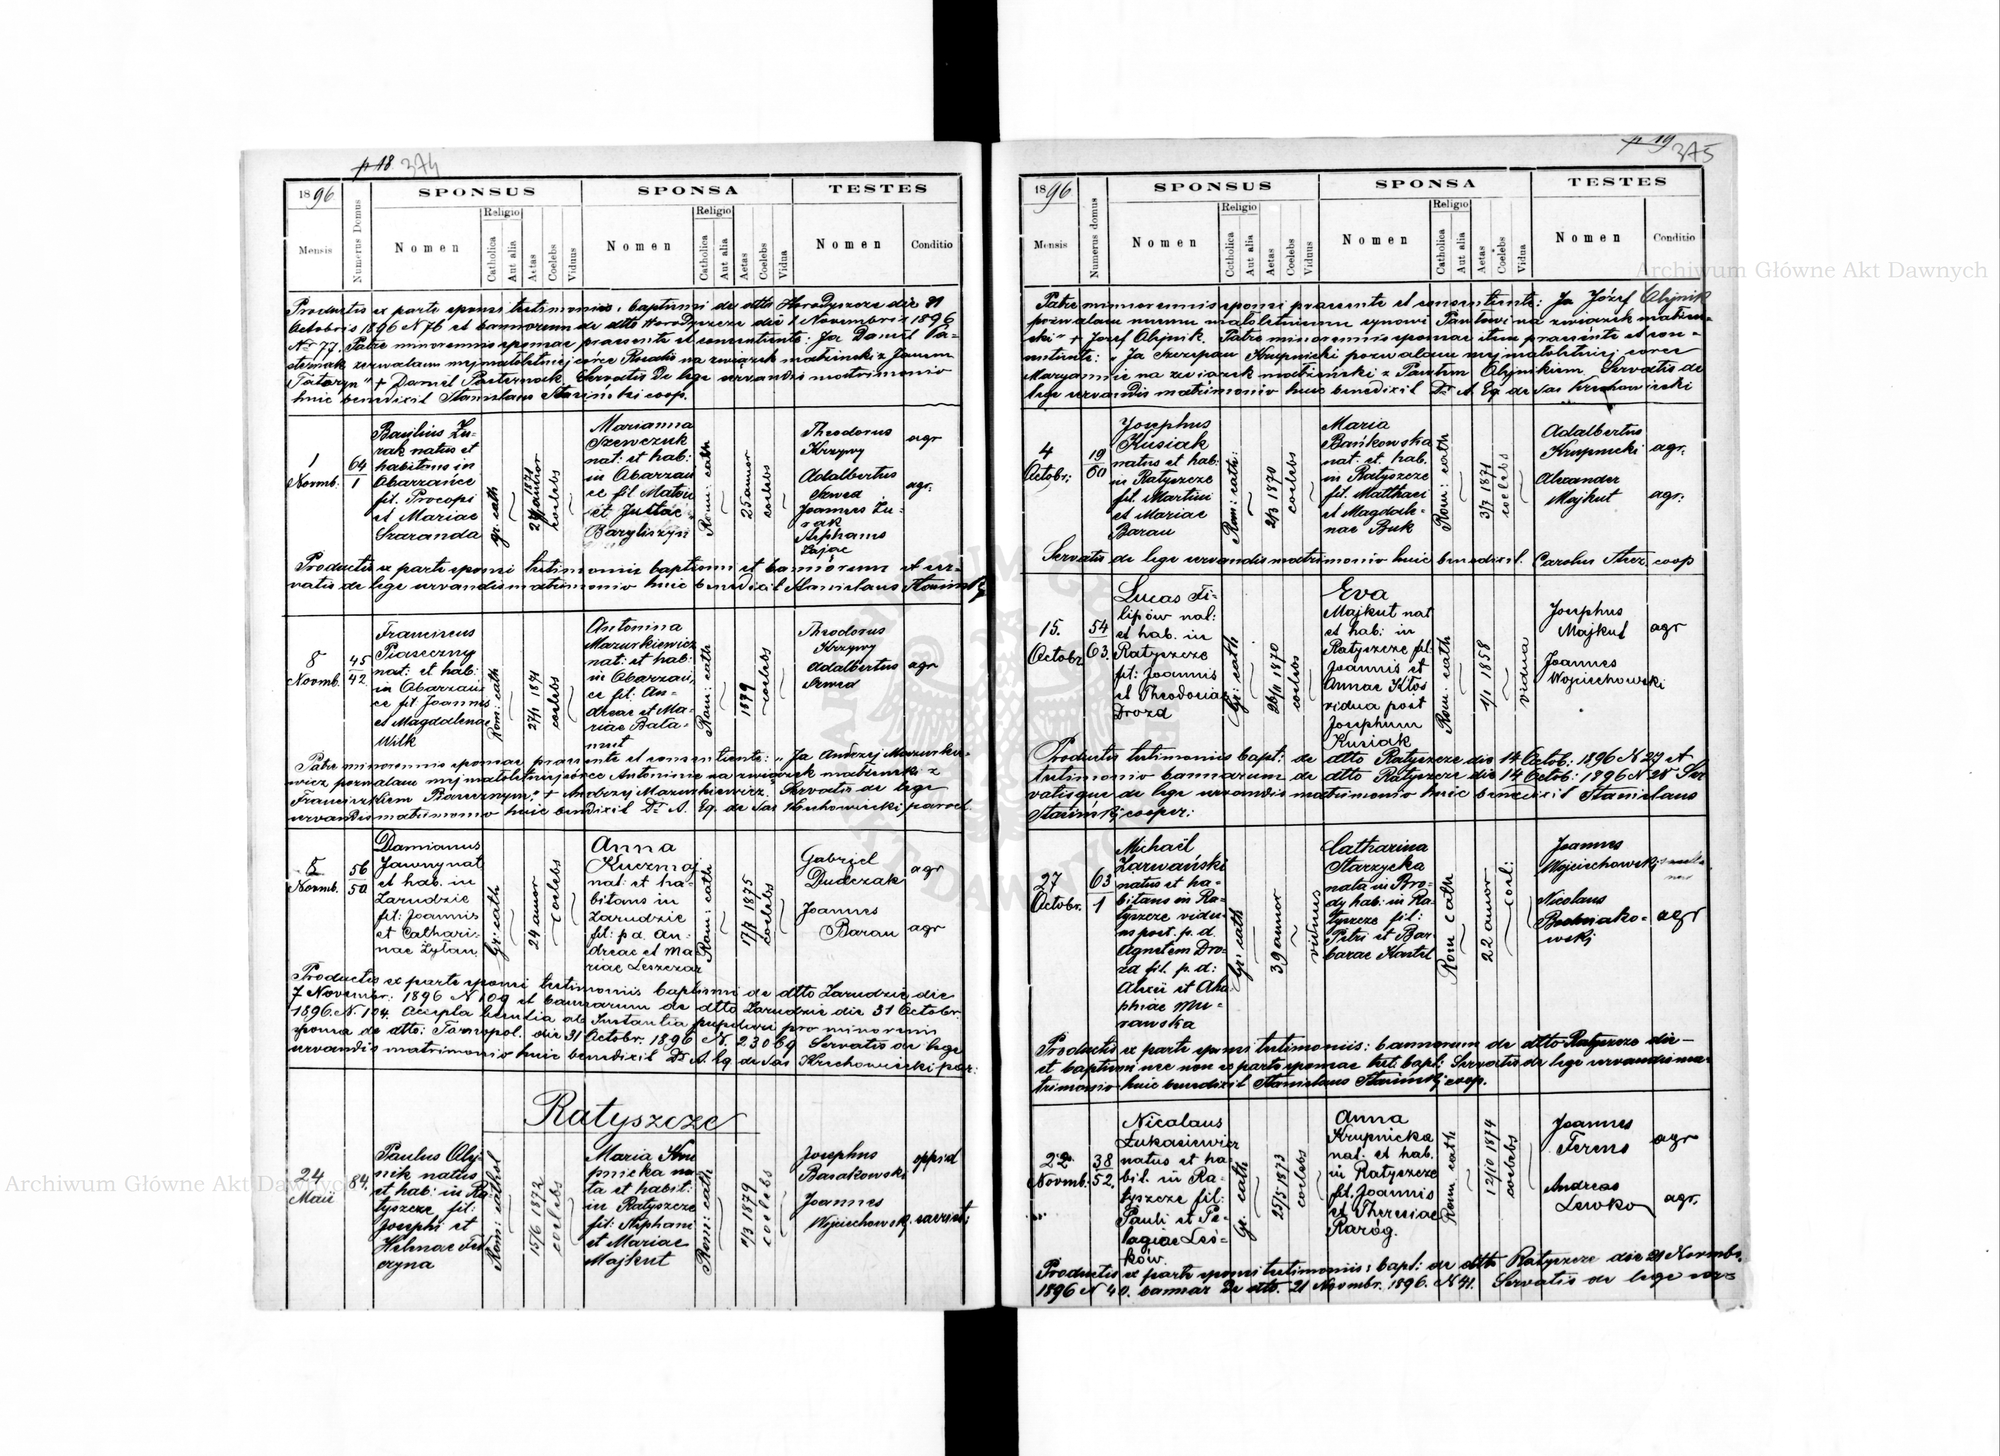 p 18 374
1896
SPONSUS
SPONSA
TESTES
Mensis
Numerus Domus
Nomen
Religio
Catholica
Aut alia
Aetas
Coelebs
Viduus
Nomen
Religio
Catholica
Aut alia
Aetas
Coelebs
Vidua
Nomen
Conditio
Productis ex parte sponsi testimoniis: baptismi de dtto Horodyszcze die 31
Octobris 1896 N 76 et bannorum de dtto Horodyszcze die 1 Novembris 1896
Nr 77. Patre minorennis sponsae praesente et consentiente: Ja Daniel Pa-
sternak zezwalam mej małoletniej córce Rosalii na związek małżeński z Janem
" + Daniel Pasternak Servatis de lege servandis matrimonio
huic benedixit Stanislaus Stasiński coop.
1
Novmb.
64
1
Basilius Żu-
rak natus et
habitans in
Obarzańce
fil. Procopi
et Mariae
Szaranda
gr. cath
1871
coelebs
Marianna
Szewczuk
nat: et hab:
in Obarzań
ce fil Mathi
et Justae
Baryliszyn
Rom: cath
25 annor
coelebs
Theodorus
Krzywy
agr
Adalbertus
Szwed
agr:
Joannes Żu-
rak
Stephanus
Zając
Productis ex parte sponsi testimoniis baptismi et bannorum et ser-
vatis de lege servandis matrimonio huic benedixit Stanislaus Stasiński
8
Novmb.
45
42
Franciscus
Piaseczny
nat: et hab:
in Obarzań
ce fil Joannis
et Magdalenae
Wilk
Rom: cath
27/1 1871
coelebs
Antonina
Mazurkiewicz
nat: et hab:
in Obarzań
ce fil: An-
dreae et Ma-
riae Bała-
mut
Rom: cath
1879
coelebs
Theodorus
Krzywy
Adalbertus
Szwed
agr
Patre minorennis sponsae praesente et consentiente: "Ja Andrzej Mazurkie-
wicz pozwalam mej małoletniej córce Antoninie na związek małżeński z
Franciszkiem Piasecznym." + Andrzej Mazurkiewicz. Servatis de lege
servandis matrimonio huic benedixit Dr. A. Eq. de Sas Kruchowiecki paroch.
8
Novmb.
56
50
Damianus
Jawny nat
et hab. in
Zarudzie
fil: Joannis
et Cathari-
nae Żyłan
Gr: cath
24 annor
coelebs
Anna
Kuczmaj
nat: et ha-
bitans in
Zarudzie
fil: p.d. An-
dreae et Ma-
riae Leszczar
Rom: cath
17/7 1875
coelebs
Gabriel
Dudczak
agr
Joannes
Baran
agr
Productis ex parte sponsi testimoniis baptismi de dtto Zarudzie die
7 Novembr: 1896 N 109 et bannorum de dtto Zarudzie die 31 Octobr.
1896 N. 104. Accepta licentia ab Instantia pupilari pro minorenni
sponsa de dtto: Tarnopol. die 31 Octobr. 1896 N. 23069 Servatis de lege
servandis matrimonio huic benedixit Dr A. Eq. de Sas Kruchowiecki par:
Ratyszcze
24
Maii
84.
Paulus Olij-
nik natus
et hab: in Ra
tyszcze fil:
Josephi et
Helenae Fed
czyna
Rom: cathol
15/6 1872
coelebs
Maria Kru
pnicka na-
ta et habit:
in Ratyszcze
fil: Stephani
et Mariae
Majkut
Rom: cath
7/3 1879
coelebs
Josephus
Barakowski
oppid
Joannes
Wojciechowski
sacrist:
p 19 375
1896
SPONSUS
SPONSA
TESTES
Mensis
Numerus domus
Nomen
Religio
Catholica
Aut alia
Aetas
Coelebs
Viduus
Nomen
Religio
Catholica
Aut alia
Aetas
Coelebs
Vidua
Nomen
Conditio
Patre minorennis sponsi praesente et consentiente: Ja Józef Olijnik
pozwalam memu małoletniemu synowi Pawłowi na związek małżeń-
ski" + Józef Olijnik. Patre minorennis sponsae item praesente et con-
sentiente: "Ja Szczepan Krupnicki pozwalam mej małoletniej córce
Maryannie na związek małżeński z Pawłem Olijnikiem. Servatis de
lege servandis matrimonio huic benedixit Dr A. Eq. de Sas Kruchowiecki
4
Octobr:
19
60
Josephus
Kusiak
natus et hab:
in Ratyszcze
fil: Martini
et Mariae
Baran
Rom: cath:
2/3 1870
coelebs
Maria
Bańkowska
nat: et. hab.
in Ratyszcze
fil. Matthaei
et Magdale-
nae Buk
Rom: cath
3/7 1871
coelebs
Adalbertus
Krupnicki
agr.
Alexander
Majkut
agr:
Servatis de lege servandis matrimonio huic benedixit. Carolus Strez. coop
15.
Octobr
54
63.
Lucas Fi-
lipów nat:
et hab. in
Ratyszcze
fil: Joannis
et Theodosiae
Drozd
Gr: cath
26/11 1870
coelebs
Eva
Majkut nat
et hab: in
Ratyszcze fil:
Joannis et
Annae Kłos
vidua post
Josephum
Kusiak
Rom: cath
1/1 1858
vidua
Josephus
Majkut
agr
Joannes
Wojciechowski
Productis testimoniis bapt: de dtto Ratyszcze die 14 Octob: 1896 N 27 et
testimonio bannorum de dtto Ratyszcze die 14 Octob: 1896 N 28 Ser
vatisque de lege servandis matrimonio huic benedixit Stanislaus
Stasiński cooper:
27
Octobr.
63
1
Michaël
Zarwański
natus et ha-
bitans in Ra-
tyszcze vidu-
us post. p. d.
Agnetem Dro-
zd fil. p. d:
Alexii et Aha
phiae Mu-
rawska
Gr: cath
39 annor
viduus
Catharina
Starzycka
nata in Bro-
dy hab: in Ra-
tyszcze fil:
Petri et Bar-
barae Kostel
Rom cath
22 annor
coel:
Joannes
Wojciechowski
Nicolaus
Bodniako-
wski
agr
Productis ex parte sponsi testimoniis: bannorum de dtto Ratyszcze die —
et baptismi nec non ex parte sponsae test. bapt: Servatis de lege servandis ma-
trimonio huic benedixit Stanislaus Stasiński coop.
22
Novmb.
38
52.
Nicolaus
Łukasiewicz
natus et ha-
bit. in Ra-
tyszcze fil:
Pauli et Pe-
lagiae Leś-
ków.
Gr. cath
25/5 1873
coelebs
Anna
Krupnicka
nat: et hab.
in Ratyszcze
fil. Joannis
et Theresiae
Raróg.
Rom: cath
12/10 1874
coelebs
Joannes
Ferens
agr
Andreas
Lewko
agr.
Productis ex parte sponsi testimoniis: bapt: de dtto Ratyszcze die 21 Novmbr.
1896 N 40. bannor De dtto. 21 Novmbr. 1896. N 41. Servatis de lege ser-
Archiwum Główne Akt Dawnych
Archiwum Główne Akt Dawnych